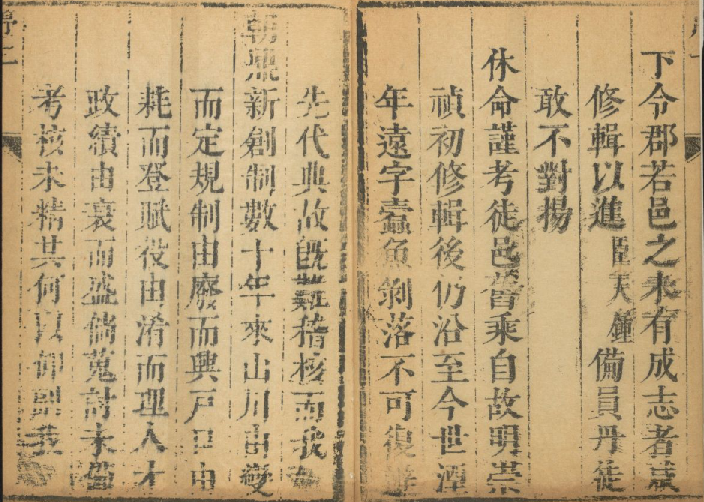 下令郡若邑之未有成志者咸
修輯以進臣天鍾備員丹徒
敢不對揚
休命謹考徒邑舊乘自故明崇
禎初修輯後仍沿至今世湮
年遠字蠧魚剝落不可復
先代典故旣難稽核而我
朝鼎新創制數十年來山川由變
而定規制由廢而興戶口由
耗而登賦役由淆而理人才
政績由衰而盛倘蒐討未
考核未精其何以仰副我